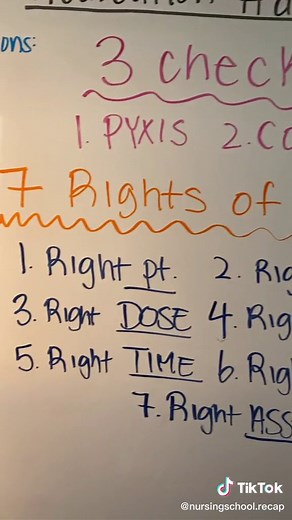 ons:
3 check
1. PYXIS 2. Co
7 Rights of
1. Right pt. 2. Rig
3. Right DOSE 4. Rig
5. Right TIME 6. Rig
7. Right ASS
TikTok
@nursingschool.recap